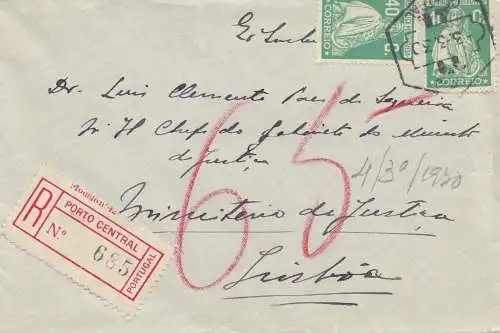 40
CORREIO
CORREIO
Dr. Luis Clemente
Chefe do Gabinete do
da Justiça
65
4/3º/1930
Ministerio da Justiça
Lisboa
R
PORTO CENTRAL
Nº 685
PORTUGAL